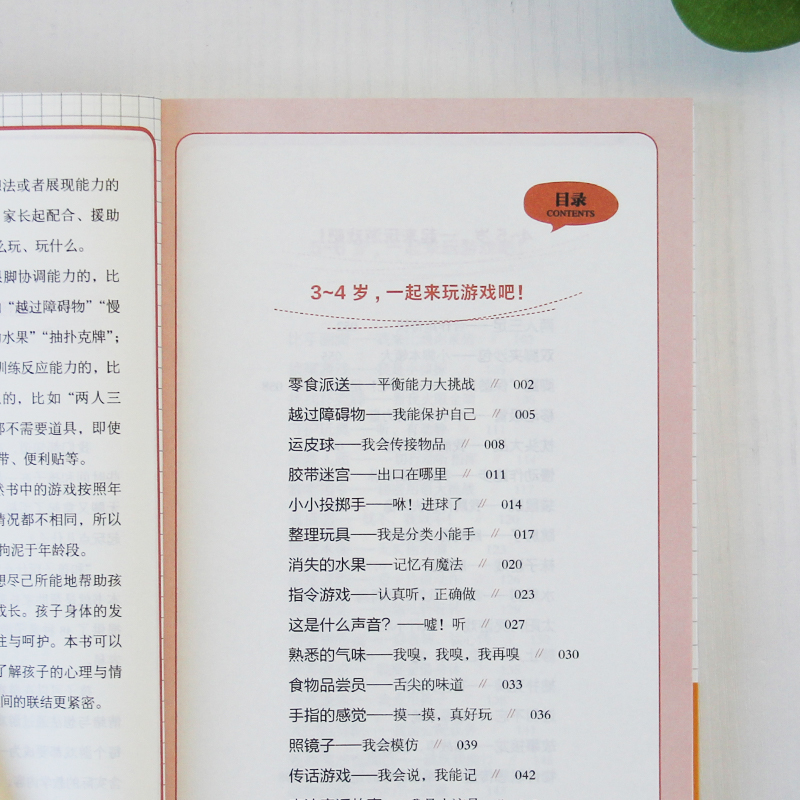 法或者展现能力的
家长起配合、援助
么玩、玩什么。
脚协调能力的，比
“越过障碍物”“慢
水果”“抽扑克牌”；
训练反应能力的，比
的，比如“两人三
都不需要道具，即使
带、便利贴等。
书中的游戏按照年
情况都不相同，所以
拘泥于年龄段。
想尽己所能地帮助孩
成长。孩子身体的发
注与呵护。本书可以
了解孩子的心理与情
间的联结更紧密。
目录
CONTENTS
3~4 岁，一起来玩游戏吧！
零食派送——平衡能力大挑战 // 002
越过障碍物——我能保护自己 // 005
运皮球——我会传接物品 // 008
胶带迷宫——出口在哪里 // 011
小小投掷手——咻！进球了 // 014
整理玩具——我是分类小能手 // 017
消失的水果——记忆有魔法 // 020
指令游戏——认真听，正确做 // 023
这是什么声音？——嘘！听 // 027
熟悉的气味——我嗅，我嗅，我再嗅 // 030
食物品尝员——舌尖的味道 // 033
手指的感觉——摸一摸，真好玩 // 036
照镜子——我会模仿 // 039
传话游戏——我会说，我能记 // 042